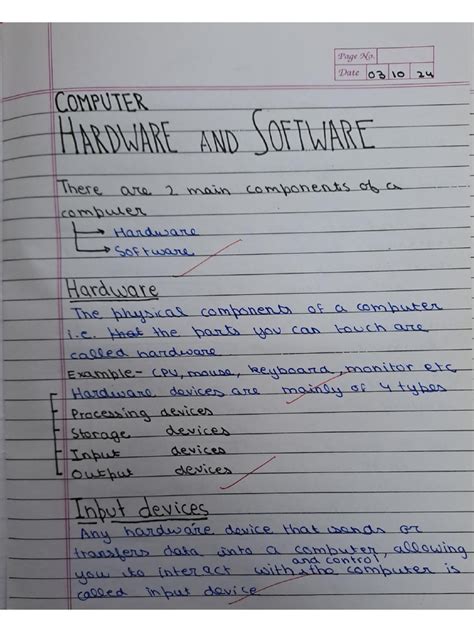 Page No.
Date 03 10 24
COMPUTER
HARDWARE AND SOFTWARE
There are 2 main components of a
computer
Hardware
Software
Hardware
The physical components of a computer
i.e. that the parts you can touch are
called hardware
Example- CPU, mouse, keyboard, monitor etc
Hardware devices are mainly of 4 types
Processing devices
Storage devices
Input devices
Output devices
Input devices
Any hardware device that sends or
transfers data into a computer, allowing
and control
you to interact with the computer is
called input device